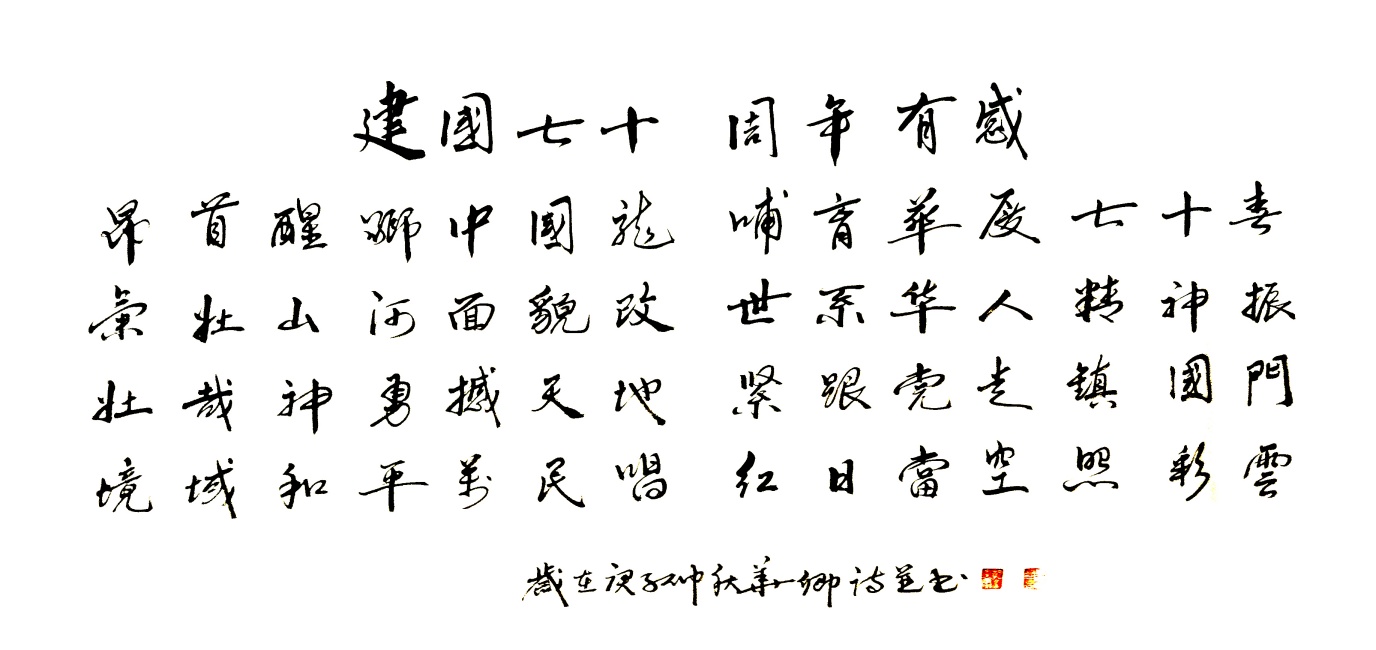 建國七十 周年有感
昂首醒獅中國龍 哺育華厦七十春
氣壯山河面貌改 世系华人精神振
壯哉神勇撼天地 緊跟党走鎮國門
境域和平萬民唱 红日當空照彩雲
歲在庚子仲秋華卿诗并书